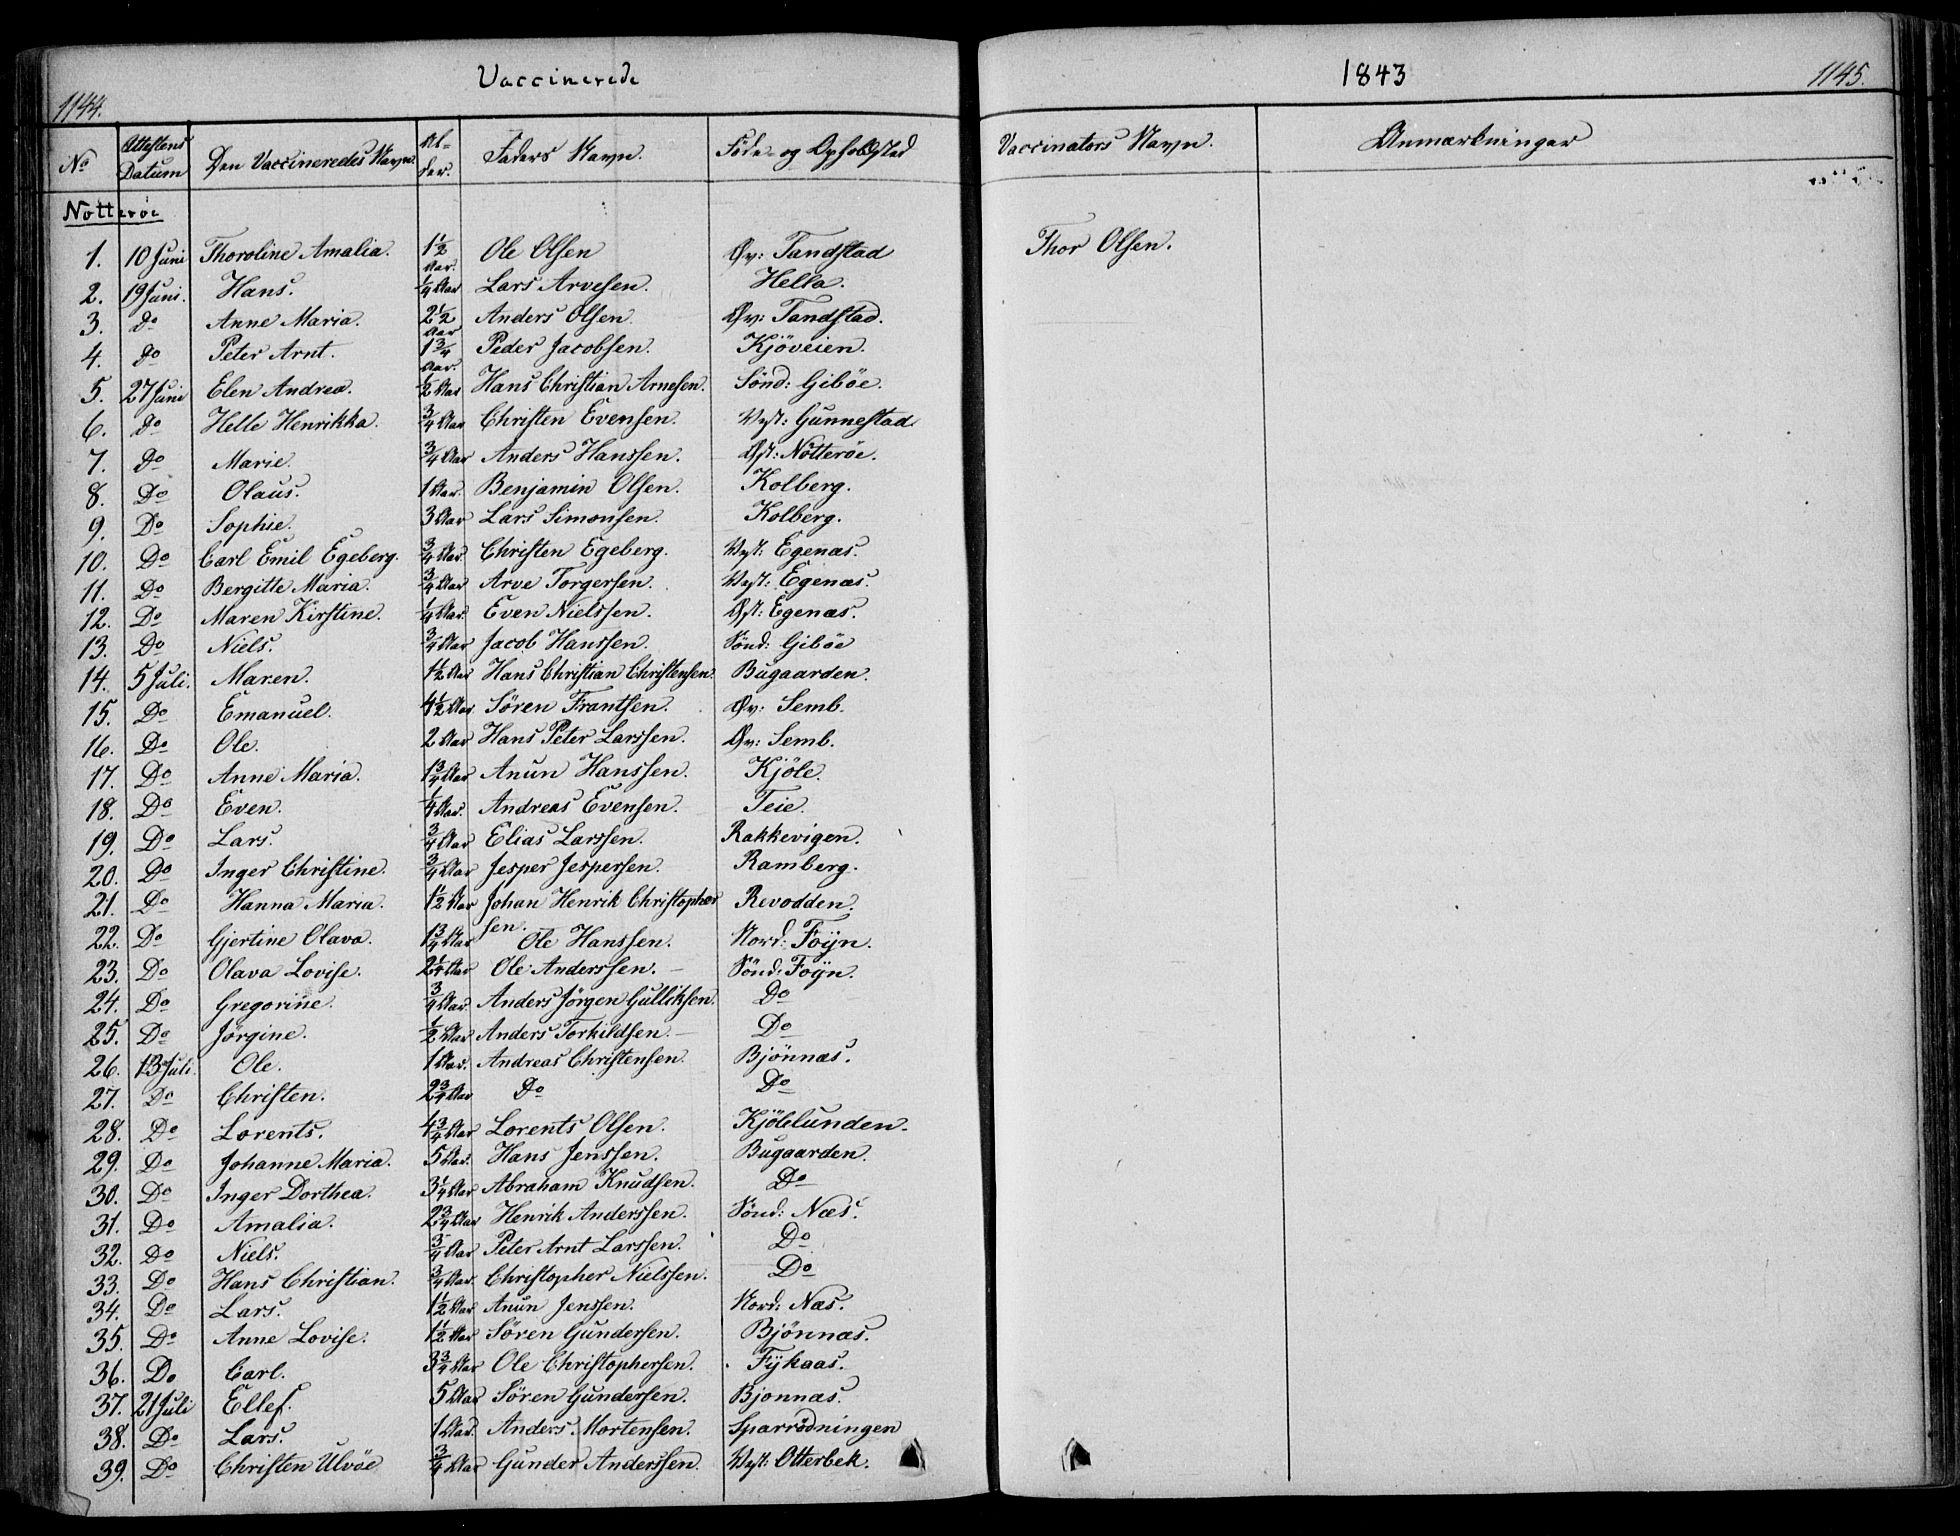 Vaccinerede
1144.
No Attestens Datum Den Vaccineredes Navn. Al- der. Faders Navn. Føde- og Opholdsted
Nøtterøe
1. 10 Juni Thoroline Amalia. 1½ Aar. Ole Olsen Øv: Tandstad
2. 19 Juni. Hans. ¼ Aar Lars Arvesen. Hella.
3. Do Anne Maria. 2½ Aar Anders Olsen. Øv: Tandstad.
4. Do Peter Arnt. 1¾ Aar. Peder Jacobsen. Kjöveien.
5. 27 Juni Elen Andrea. ½ Aar Hans Christian Arnesen. Sönd: Giböe.
6. Do Helle Henrikka. ¾ Aar Christen Evensen. Vest: Gunnestad
7. Do Marie. ¾ Aar Anders Hanssen. Øst: Nötteröe.
8. Do Olaus. 1 Aar. Benjamin Olsen. Kolberg.
9. Do Sophie. 3 Aar Lars Simonsen. Kolberg.
10. Do Carl Emil Egeberg. ¾ Aar. Christen Egeberg. Vest: Egenæs.
11. Do Bergitte Maria. ¾ Aar Arve Torgersen. Vest: Egenæs.
12. Do Maren Kirstine. ¼ Aar. Even Nielssen. Øst: Egenæs.
13. Do Niels. ¾ Aar Jacob Hanssen. Sönd: Giböe
14. 5 Juli. Maren. 1½ Aar Hans Christian Christensen. Bugaarden.
15. Do Emanuel. 4½ Aar Sören Frantsen. Øv: Semb.
16. Do Ole. 2 Aar Hans Peter Larssen. Øv: Semb.
17. Do Anne Maria. 1¾ Aar Anun Hanssen. Kjöle.
18. Do Even. ¼ Aar. Andreas Evensen. Teie.
19. Do Lars. ¾ Aar Elias Larssen. Rakkevigen.
20. Do Inger Christine. ¾ Aar Jesper Jespersen. Ramberg.
21. Do Hanna Maria. 1½ Aar Johan Henrik Christopher Revodden.
sen.
22. Do Gjertine Olava. 1¾ Aar Ole Hanssen. Nord: Foÿn.
23. Do Olava Lovise. 2¼ Aar Ole Anderssen. Sönd: Foÿn.
24. Do Gregorine. ¾ Aar. Anders Jörgen Gulliksen. Do
25. Do Jörgine. ½ Aar Anders Torkildsen. Do
26. 13 Juli. Ole. 1 Aar. Andreas Christensen. Bjönnæs.
27. Do Christen. 2¾ Aar Do Do
28. Do Lorents. 4¾ Aar Lorents Olsen. Kjölelunden.
29. Do Johanne Maria. 5 Aar. Hans Jenssen. Bugaarden.
30. Do Inger Dorthea. 3¼ Aar Abraham Knudsen. Do
31. Do Amalia. 2¾ Aar Henrik Anderssen. Sönd: Næs.
32. Do Niels. ¾ Aar Peter Arnt Larssen. Do
33. Do Hans Christian. ¾ Aar. Christopher Nielssen. Do
34. Do Lars. 1½ Aar Anun Jenssen. Nord: Næs.
35. Do Anne Lovise. 1½ Aar Sören Gundersen. Bjönnæs.
36. Do Carl. 3¾ Aar Ole Christophersen. Fÿkaas.
37. 21 Juli Ellef. 5 Aar Sören Gundersen. Bjonnæs.
38. Do Lars. 1 Aar. Anders Mortensen. Sparrödningen
39. Do Christen Ulvöe ¾ Aar Gunder Anderssen. Vest: Otterbek.
1843
1145.
Vaccinators Navn. Anmærkninger
Thor Olsen.